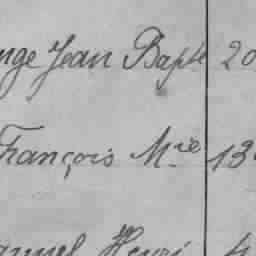 nge Jean Bapte 20
François Mie 13
anuel Henri 4